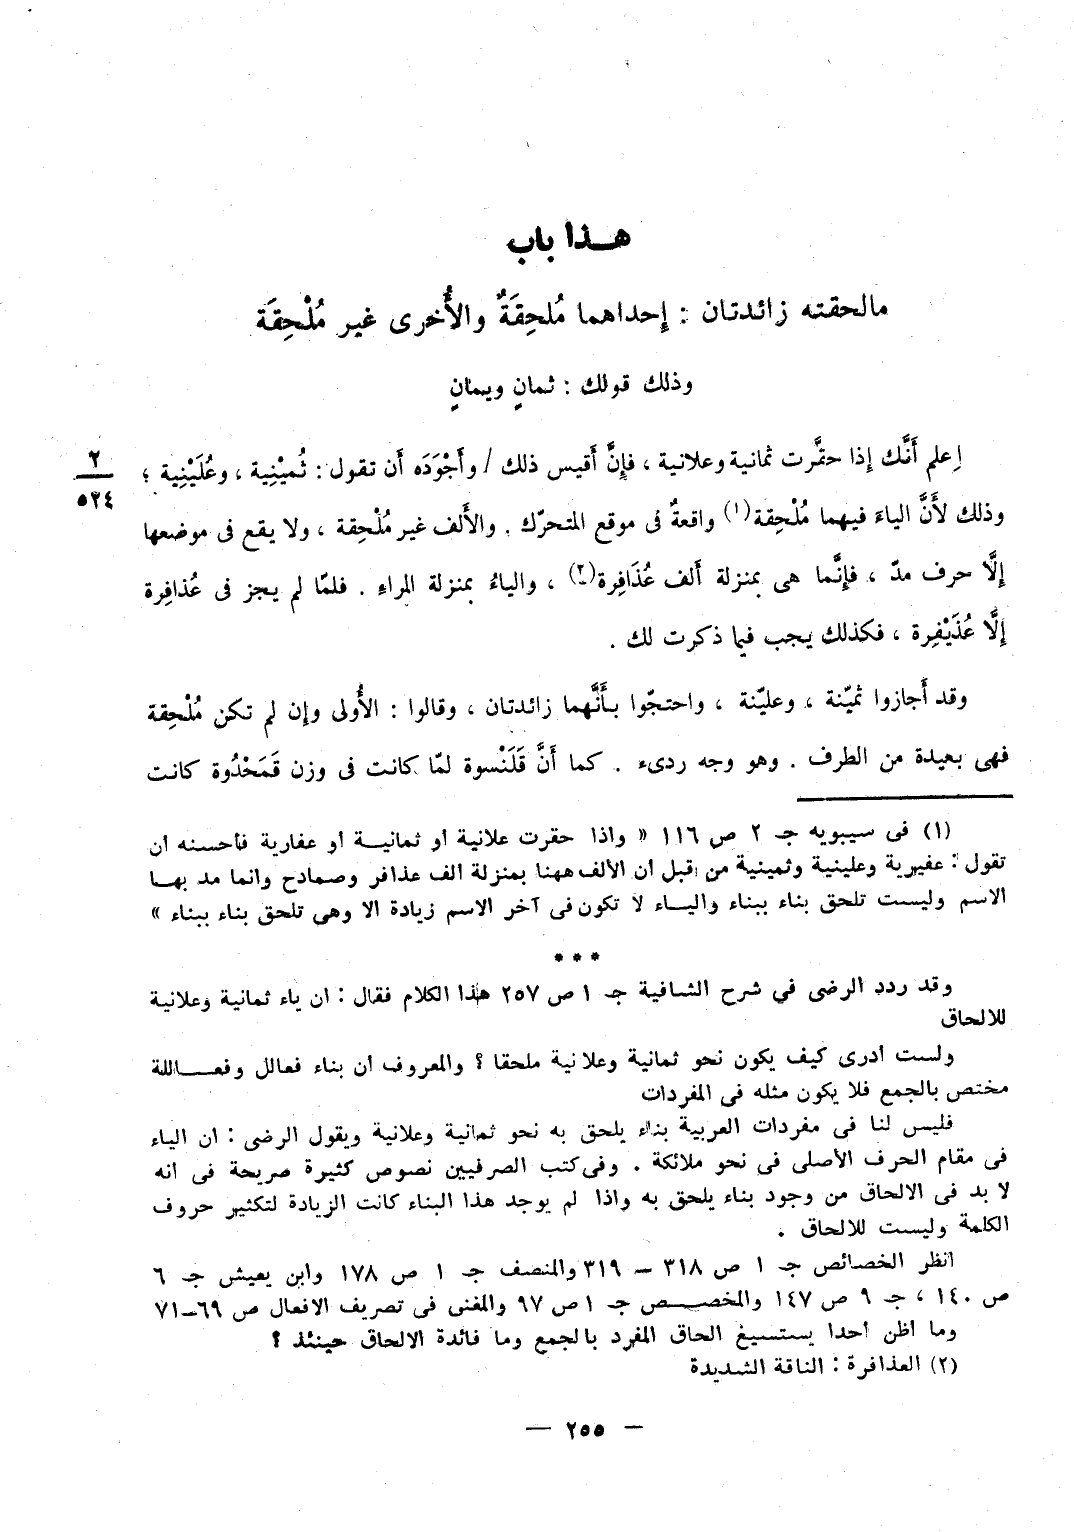 هـــذا باب
مالحقته زائدتان : إحداهما مُلحِقَةٌ والأُخرى غير مُلْحِقَة
وذلك قولك : ثمانٍ ويمانٍ
اِعلم أَنَّك إذا حقَّرت ثمانية وعلانية ، فإِنَّ أَقيس ذلك / وأَجْوَدَه أَن تقول : ثُميْنِية ، وعُلَيْنِية ؛
٢
٥٢٤
وذلك لأَنَّ الياءَ فيهما مُلْحِقة(١) واقعةٌ فى موقع المتحرّك . والأَلف غير مُلْحِقة ، ولا يقع فى موضعها
إلَّا حرف مدّ ، فإِنَّما هى بمنزلة أَلف عُذَافِرة(٢) ، والياءُ بمنزلة الراءِ . فلمّا لم يجز فى عُذافِرة
إلَّا عُذَيْفِرة ، فكذلك يجب فيما ذكرت لك .
وقد أَجازوا ثميّنة ، وعليّنة ، واحتجّوا بأَنَّهما زائدتان ، وقالوا : الأُولى وإن لم تكن مُلْحِقة
فهى بعيدة من الطرف . وهو وجه ردىء . كما أَنَّ قَلَنْسوة لمّا كانت فى وزن قَمَحْدُوة كانت
(١) فى سيبويه جـ ٢ ص ١١٦ « واذا حقرت علانية أو ثمانيـــة أو عفارية فأحسنه أن
تقول : عفيرية وعلينية وثمينية من قبل أن الألف ههنا بمنزلة ألف عذافر وصمادح وانما مد بهــا
الاسم وليست تلحق بناء ببناء واليــاء لا تكون فى آخر الاسم زيادة الا وهى تلحق بناء ببناء »
* * *
وقد ردد الرضى في شرح الشافية جـ ١ ص ٢٥٧ هذا الكلام فقال : ان ياء ثمانية وعلانية
للالحاق
ولست أدرى كيف يكون نحو ثمانية وعلانية ملحقا ؟ والمعروف أن بناء فعالل وفعــــاللة
مختص بالجمع فلا يكون مثله فى المفردات
فليس لنا فى مفردات العربية بناء يلحق به نحو ثمانية وعلانية ويقول الرضى : ان الياء
فى مقام الحرف الأصلى فى نحو ملائكة . وفى كتب الصرفيين نصوص كثيرة صريحة فى أنه
لا بد فى الالحاق من وجود بناء يلحق به واذا لم يوجد هذا البناء كانت الزيادة لتكثير حروف
الكلمة وليست للالحاق .
انظر الخصائص جـ ١ ص ٣١٨ – ٣١٩ والمنصف جـ ١ ص ١٧٨ وابن يعيش جـ ٦
ص ١٤٠ ، جـ ٩ ص ١٤٧ والمخصـــص جـ ١ ص ٩٧ والمغنى فى تصريف الافعال ص ٦٩–٧١
وما أظن أحدا يستسيغ الحاق المفرد بالجمع وما فائدة الالحاق حينئذ ؟
(٢) العذافرة : الناقة الشديدة
— ٢٥٥ —